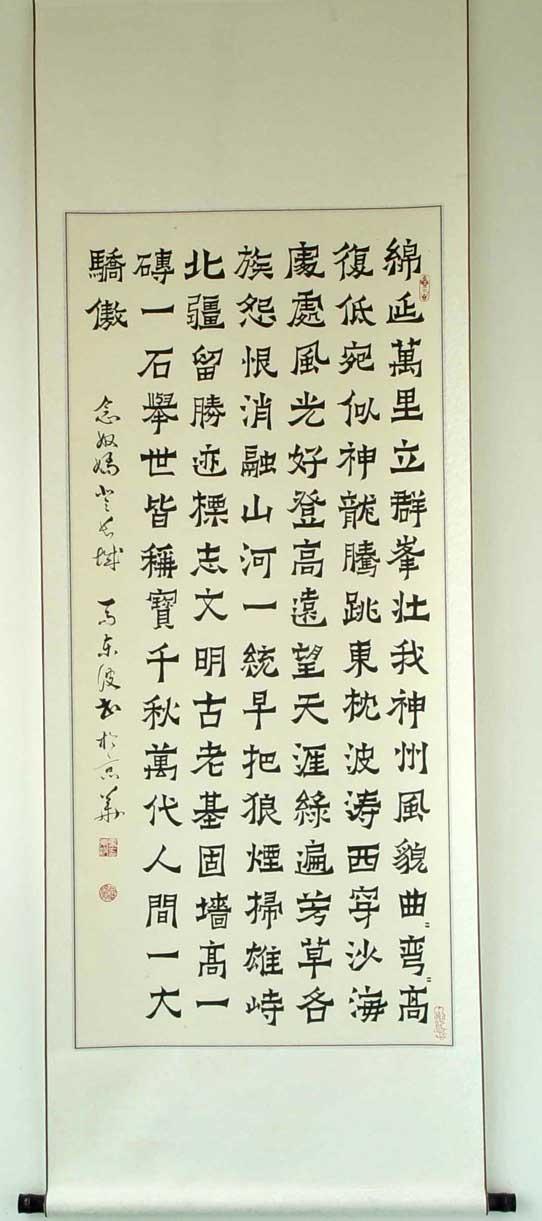 綿延萬里立群峯壯我神州風貌曲〃彎〃高
復低宛似神龍騰跳東枕波涛西穿沙海
處處風光好登高遠望天涯綠遍芳草各
族怨恨消融山河一統早把狼煙掃雄峙
北疆留勝迹標志文明古老基固墻高一
磚一石舉世皆稱寶千秋萬代人間一大
驕傲
念奴嬌登長城 馬東波书於京華